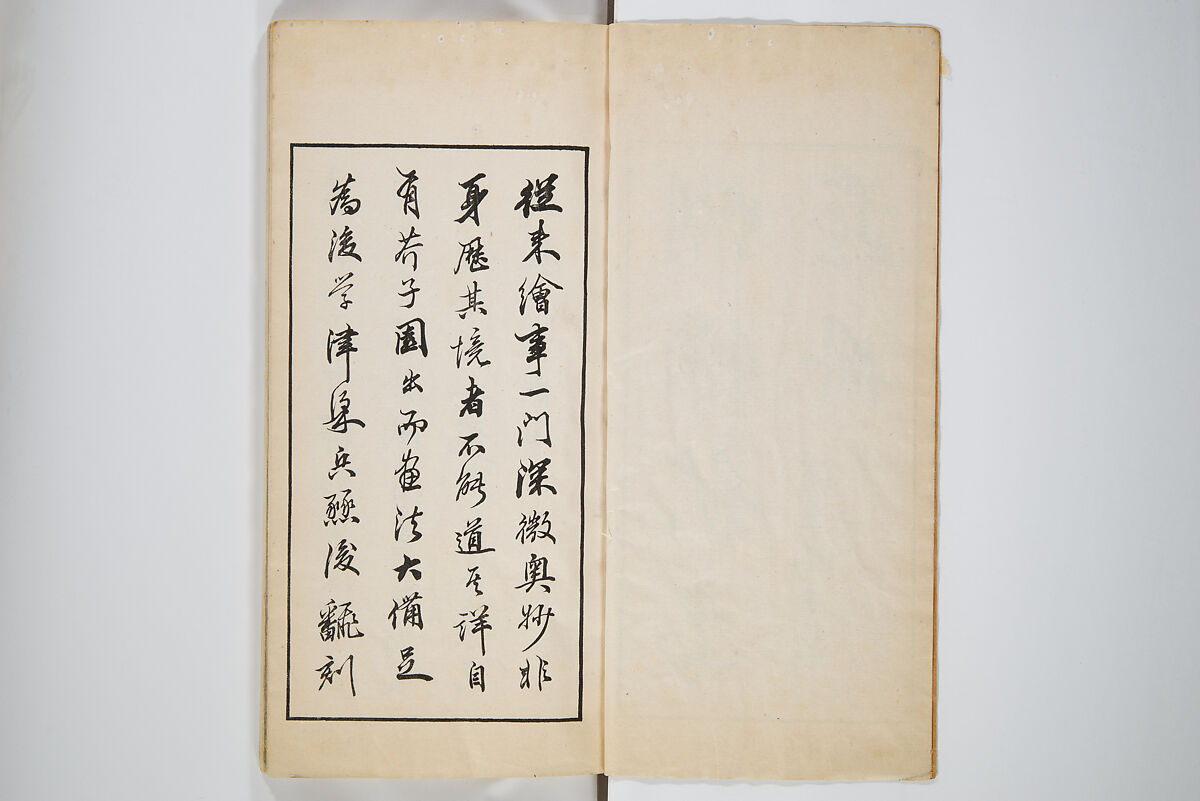 從来繪事一門深微奥妙非
身歷其境者不能道其詳自
有芥子園出而畫法大備足
為後学津梁兵燹後翻刻